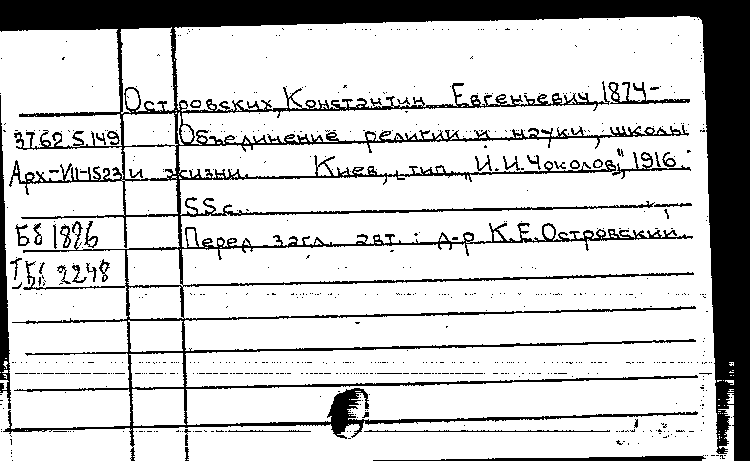 Островских, Константин Евгеньевич, 1874-
37.62.5.149 Объединение религии и науки, школы
Арх-VII-1523 и жизни. Киев, тип. „И.И.Чоколов", 1916.
55с.
Бб 1896 Перед загл. авт.: д-р К.Е.Островский.
ТБб 2248